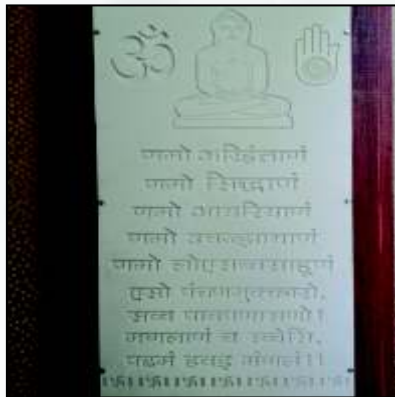 ॐ
णमो अरिहंताणं
णमो सिद्धाणं
णमो आयरियाणं
णमो उवज्झायाणं
णमो लोए सव्व साहूणं
एसो पंचणमुक्कारो,
सव्व पावप्पणासणो।
मंगलाणं च सव्वेसिं,
पढमं हवइ मंगलं।।